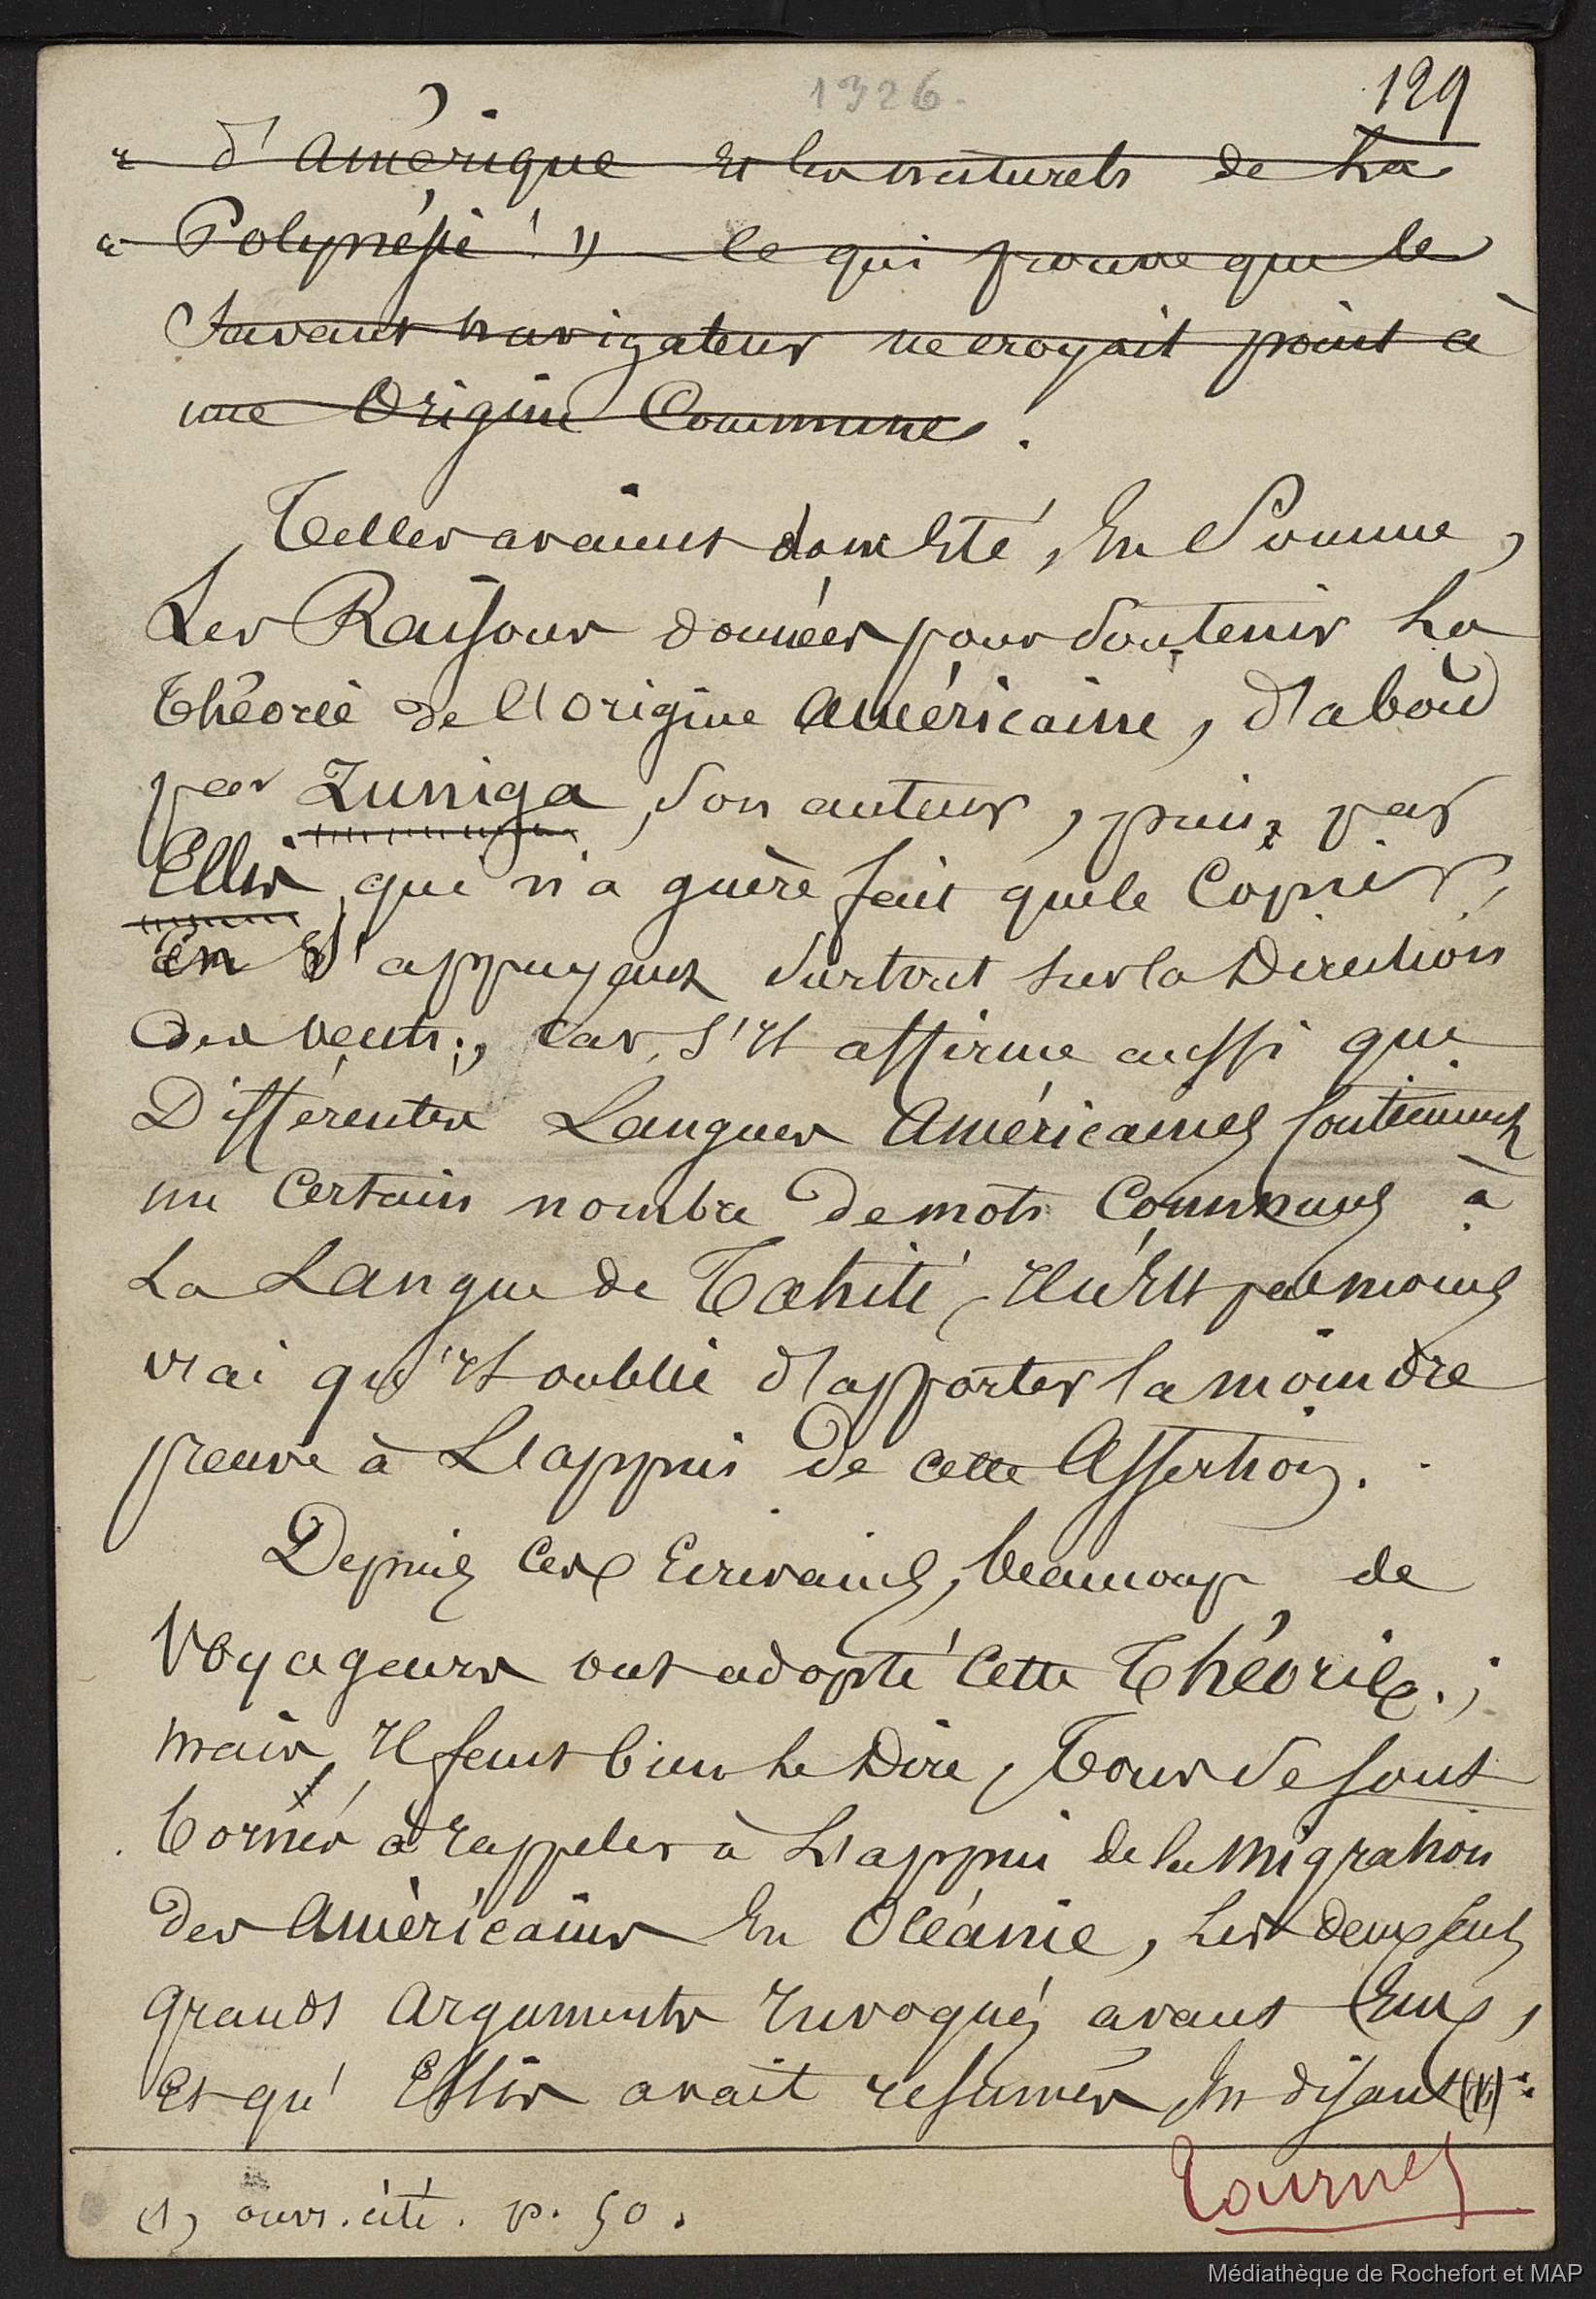 1326.
129
« d'Amérique et les naturels de la
« Polynésie ! » — ce qui prouve que le
Savant navigateur ne croyait point à
une Origine Commune.
Telles avaient donc été, En Somme,
Les Raisons données pour Soutenir La
Théorie de l'Origine Américaine, d'abord
par Zuniga, Son auteur, puis, par
Ellis, qui n'a guère fait que le Copier,
En S'appuyant Surtout sur la Direction
des vents ; car, s'Il affirme aussi que
Différentes Langues Américaines Contiennent
un Certain nombre de mots Communs à
La Langue de Tahiti, Il n'Est pas moins
vrai qu'Il oublie d'apporter la moindre
preuve à L'appui de cette Assertion.
Depuis Ces Ecrivains, beaucoup de
Voyageurs ont adopté Cette Théorie ;
mais, Il faut bien Le Dire, Tous Se sont
bornés à rappeler à L'appui de la Migration
des Américains En Océanie, Les deux seuls
grands Arguments Invoqués avant Eux,
Et qu'Ellis avait resumés En disant (1) :
(1) ouvr. cité. p. 50.
Tournez
Médiathèque de Rochefort et MAP